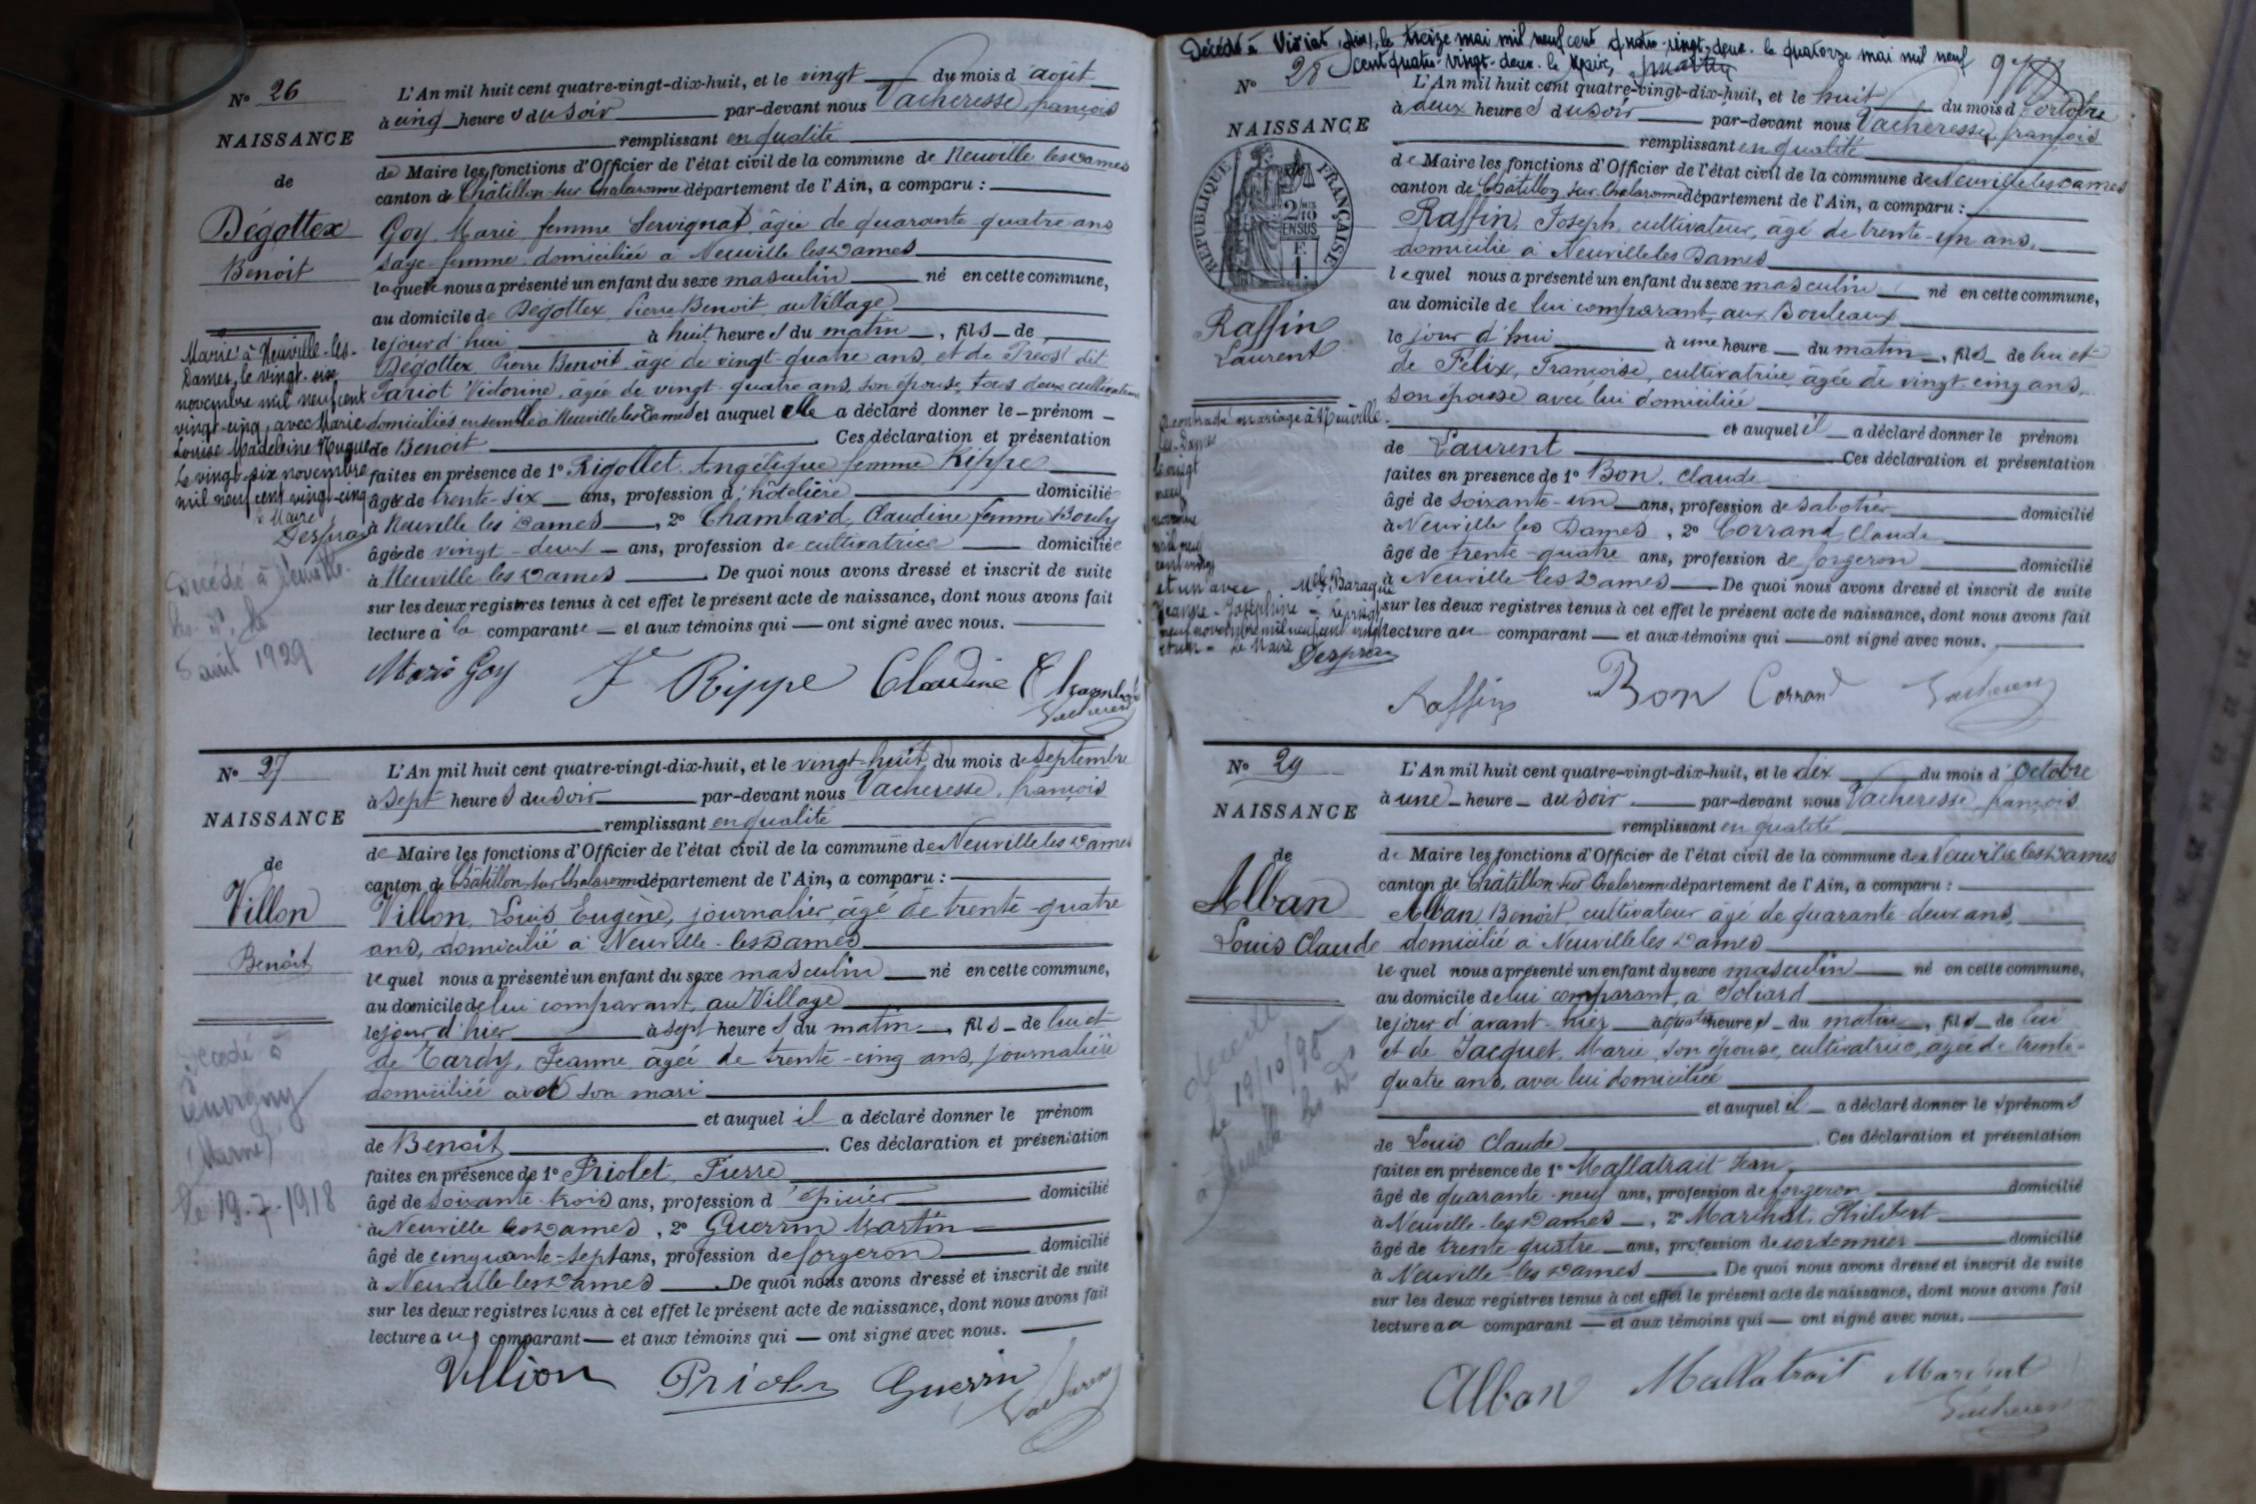 N° 26
NAISSANCE
de
Dégottex
Benoit
Marié à Neuville-les-
Dames, le vingt-six
novembre mil neuf cent
vingt-cinq, avec Marie
Louise Madeleine Hugue
Le vingt-six novembre
mil neuf cent vingt-cinq
le Maire
Décédé à Neuville
les D. le
5 août 1929
L'An mil huit cent quatre-vingt-dix-huit, et le vingt du mois d'août
à cinq heures du soir par-devant nous Vacheresse, françois
remplissant en qualité
de Maire les fonctions d'Officier de l'état civil de la commune de Neuville les Dames
canton de Châtillon sur Chalaronne département de l'Ain, a comparu :
Goy Marie femme Servignat âgée de quarante quatre ans
sage-femme domiciliée à Neuville les Dames
laquelle nous a présenté un enfant du sexe masculin né en cette commune,
au domicile de Dégottex Pierre Benoit au Village
le jour d'hui à huit heures du matin, fils de
Dégottex Pierre Benoit âgé de vingt-quatre ans, et de Préost dit
Pariot Victorine, âgée de vingt-quatre ans, son épouse, tous deux cultivateurs
domiciliés ensemble à Neuville les Dames et auquel elle a déclaré donner le prénom
de Benoit Ces déclaration et présentation
faites en présence de 1° Rigollet Angélique femme Rippe
âgée de trente-six ans, profession d'hôtelière domiciliée
à Neuville les Dames, 2° Chambard, Claudine femme Bouly
âgée de vingt-deux ans, profession de cultivatrice domiciliée
à Neuville les Dames De quoi nous avons dressé et inscrit de suite
sur les deux registres tenus à cet effet le présent acte de naissance, dont nous avons fait
lecture à la comparante et aux témoins qui ont signé avec nous.
Marie Goy F Rippe Claudine Chambard
N° 27
NAISSANCE
de
Villon
Benoit
Décédé à
(Marne)
le 19-7-1918
L'An mil huit cent quatre-vingt-dix-huit, et le vingt-huit du mois de septembre
à sept heures du soir par-devant nous Vacheresse, françois
remplissant en qualité
de Maire les fonctions d'Officier de l'état civil de la commune de Neuville les Dames
canton de Châtillon sur Chalaronne département de l'Ain, a comparu :
Villon, Louis Eugène, journalier, âgé de trente-quatre
ans, domicilié à Neuville-les Dames
lequel nous a présenté un enfant du sexe masculin né en cette commune,
au domicile de lui comparant, au Village
le jour d'hier à sept heures du matin, fils de lui et
de Tardy, Jeanne âgée de trente-cinq ans, journalière
domiciliée avec son mari
et auquel il a déclaré donner le prénom
de Benoit. Ces déclaration et présentation
faites en présence de 1° Priolet, Pierre
âgé de soixante-trois ans, profession d'épicier domicilié
à Neuville les Dames, 2° Guerrin Martin
âgé de cinquante-sept ans, profession de forgeron domicilié
à Neuville-les Dames De quoi nous avons dressé et inscrit de suite
sur les deux registres tenus à cet effet le présent acte de naissance, dont nous avons fait
lecture au comparant et aux témoins qui ont signé avec nous.
Villion Priolet Guerrin
Décédé à Viriat (Ain), le treize mai mil neuf cent quatre-vingt-deux. le quatorze mai mil neuf
cent quatre-vingt-deux. le Maire,
N° 28
NAISSANCE
RÉPUBLIQUE FRANÇAISE
Raffin
Laurent
A contracté mariage à Neuville
les-Dames
le vingt
neuf
novembre
mil neuf
cent vingt
et un avec Mlle Baraque
Jeanne-Joséphine
L'An mil huit cent quatre-vingt-dix-huit, et le huit du mois d'octobre
à deux heures du soir par-devant nous Vacheresse, françois
remplissant en qualité
de Maire les fonctions d'Officier de l'état civil de la commune de Neuville les Dames
canton de Châtillon sur Chalaronne département de l'Ain, a comparu :
Raffin, Joseph, cultivateur, âgé de trente-un ans,
domicilié à Neuville les Dames
lequel nous a présenté un enfant du sexe masculin né en cette commune,
au domicile de lui comparant, aux Bouleaux
le jour d'hui à une heure du matin, fils de lui et
de Félix, Françoise, cultivatrice, âgée de vingt-cinq ans,
son épouse avec lui domiciliée
et auquel il a déclaré donner le prénom
de Laurent Ces déclaration et présentation
faites en présence de 1° Bon, Claude
âgé de soixante-un ans, profession de sabotier domicilié
à Neuville les Dames, 2° Corrand Claude
âgé de trente-quatre ans, profession de forgeron domicilié
à Neuville-les Dames De quoi nous avons dressé et inscrit de suite
sur les deux registres tenus à cet effet le présent acte de naissance, dont nous avons fait
lecture au comparant et aux témoins qui ont signé avec nous.
Raffin Bon Corrand
N° 29
NAISSANCE
de
Alban
Louis Claude
décédé
le 19/10/98
à Neuville les Ds
L'An mil huit cent quatre-vingt-dix-huit, et le dix du mois d'octobre
à une heure du soir par-devant nous Vacheresse, françois
remplissant en qualité
de Maire les fonctions d'Officier de l'état civil de la commune de Neuville les Dames
canton de Châtillon sur Chalaronne département de l'Ain, a comparu :
Alban, Benoit, cultivateur âgé de quarante-deux ans,
domicilié à Neuville les Dames
lequel nous a présenté un enfant du sexe masculin né en cette commune,
au domicile de lui comparant, à Soliard
le jour d'avant-hier à quatre heures du matin, fils de lui
et de Jacquet, Marie, son épouse, cultivatrice, âgée de trente-
quatre ans, avec lui domiciliée
et auquel il a déclaré donner les prénoms
de Louis Claude. Ces déclaration et présentation
faites en présence de 1° Mallatrait Jean,
âgé de quarante-neuf ans, profession de forgeron domicilié
à Neuville-les Dames, 2° Marinat, Philibert
âgé de trente-quatre ans, profession de cordonnier domicilié
à Neuville-les Dames De quoi nous avons dressé et inscrit de suite
sur les deux registres tenus à cet effet le présent acte de naissance, dont nous avons fait
lecture au comparant et aux témoins qui ont signé avec nous.
Alban Mallatrait